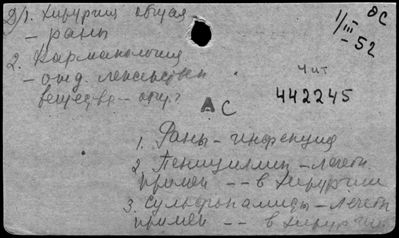 Д/1. Хирургия общая
– раны
2. Фармакология
– отд. лекарствен
вещества –
1/III – 52
ОС
Чит
442245
АС
1. Раны – инфекция
2. Пенициллин – лечебн
примен -- в хирургии
3. Сульфонамиды – лечебн
примен -- в хирургии